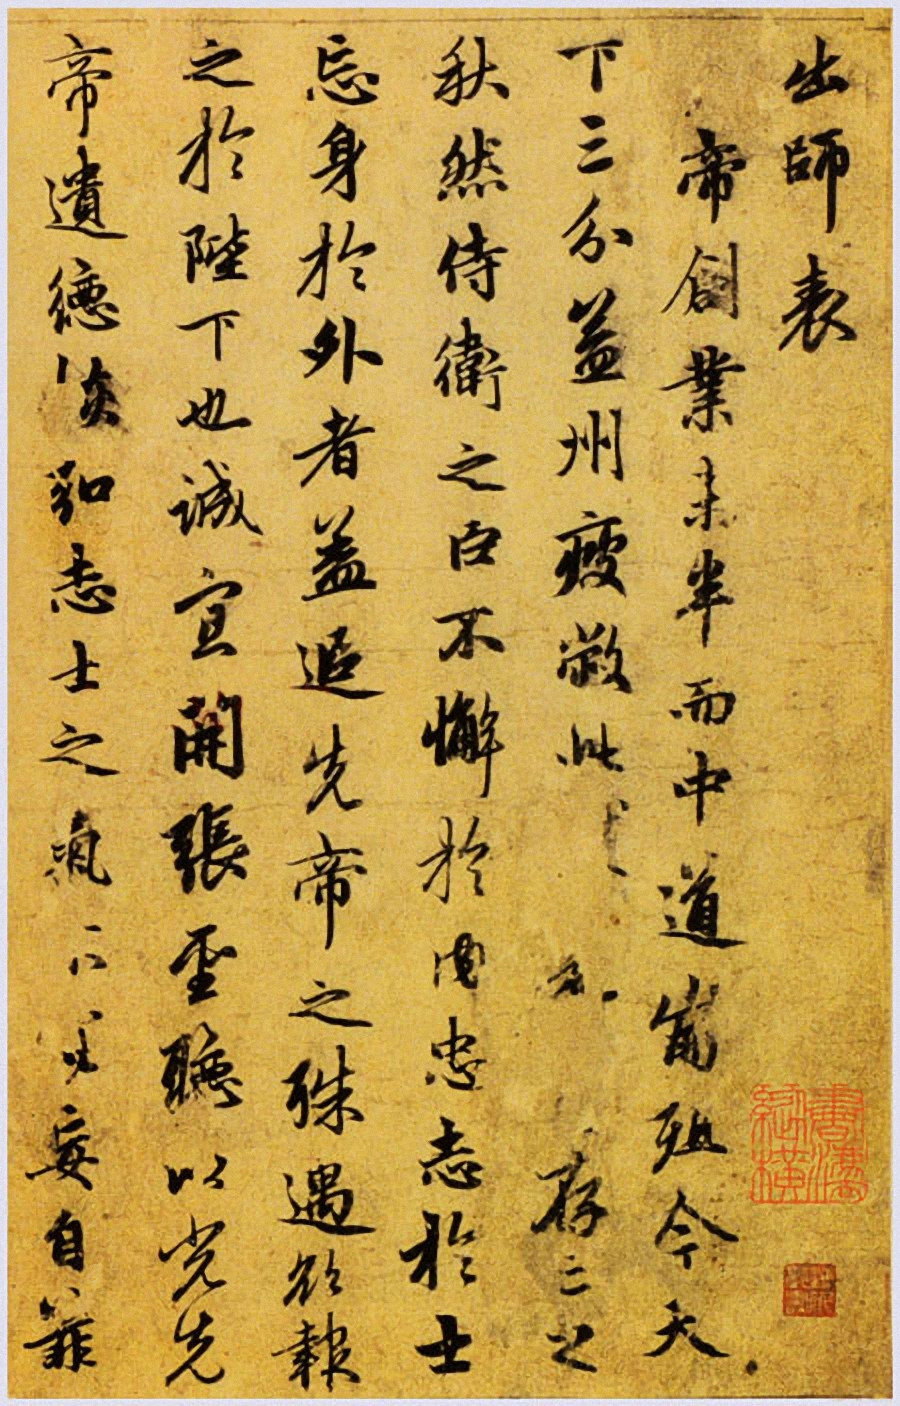 出師表
帝創業未半而中道崩殂今天
下三分益州疲敝此存亡之
秋然侍衛之臣不懈於内忠志於士
忘身於外者蓋追先帝之殊遇欲報
之於陛下也誠宜開張聖聽以光先
帝遺德恢弘志士之氣不宜妄自菲